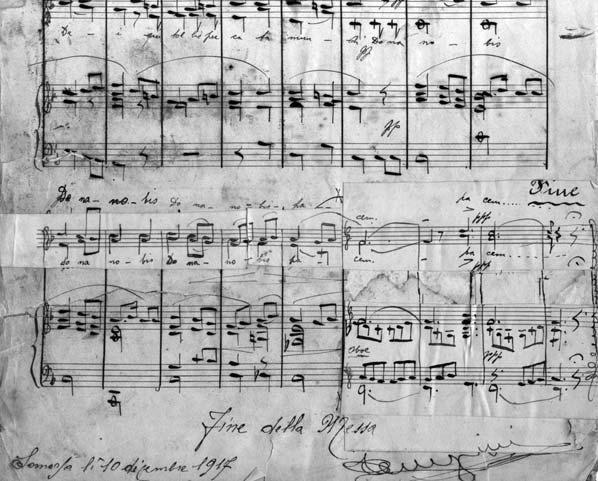 De - i qui tol lis pec ca ta mun - di Do na no - bis
pp
pp
Fine
Do na - no - bis Do na - no - bis - pa -
cem.
pa cem....
ppp
do na - no - bis Do na - no - bis pa -
cem - - pa cem
ppp
Oboe
ppp
Fine della Messa
li 10 dicembre 1917